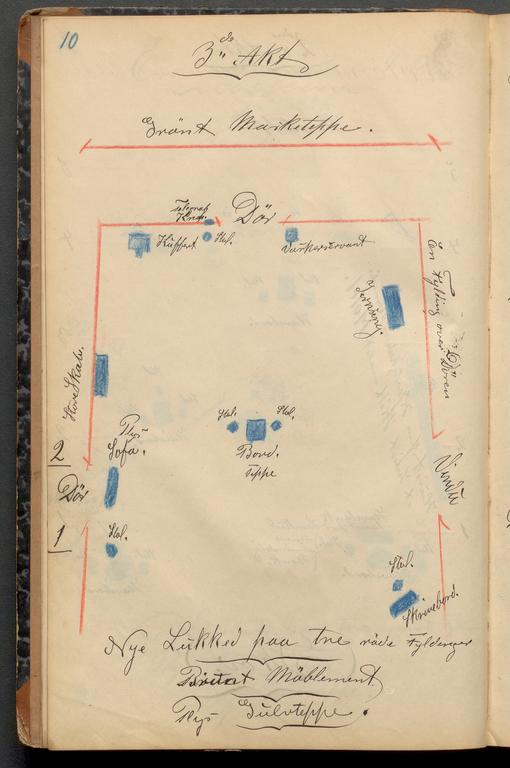 10
3de Akt
Grönt Marketeppe.
Telegraf
Knap.
Dör
Kuffert
Stol.
Vaskeservant
Jernseng.
En Fylding over Dören
Store Skab.
Stol.
Stol.
Bord.
Teppe
Plys
Sofa.
2
Dör
1
Stol.
Vindu
Stol.
Skrivebord.
Nye Lukked paa tre röde Fyldenger
Möblement
Plys Gulvteppe.